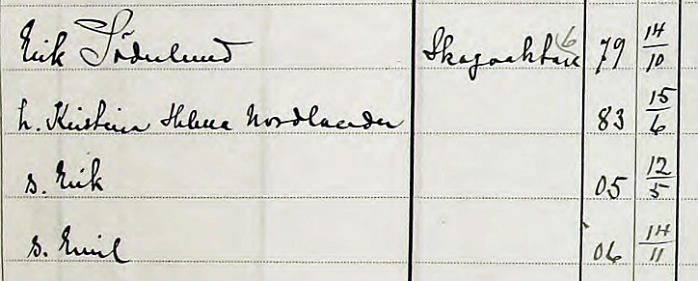 Erik Söderlund Skogvaktare 6 79 14/10
h. Kristina Helena Nordlander 83 15/6
s. Erik 05 12/5
s. Emil 06 14/11